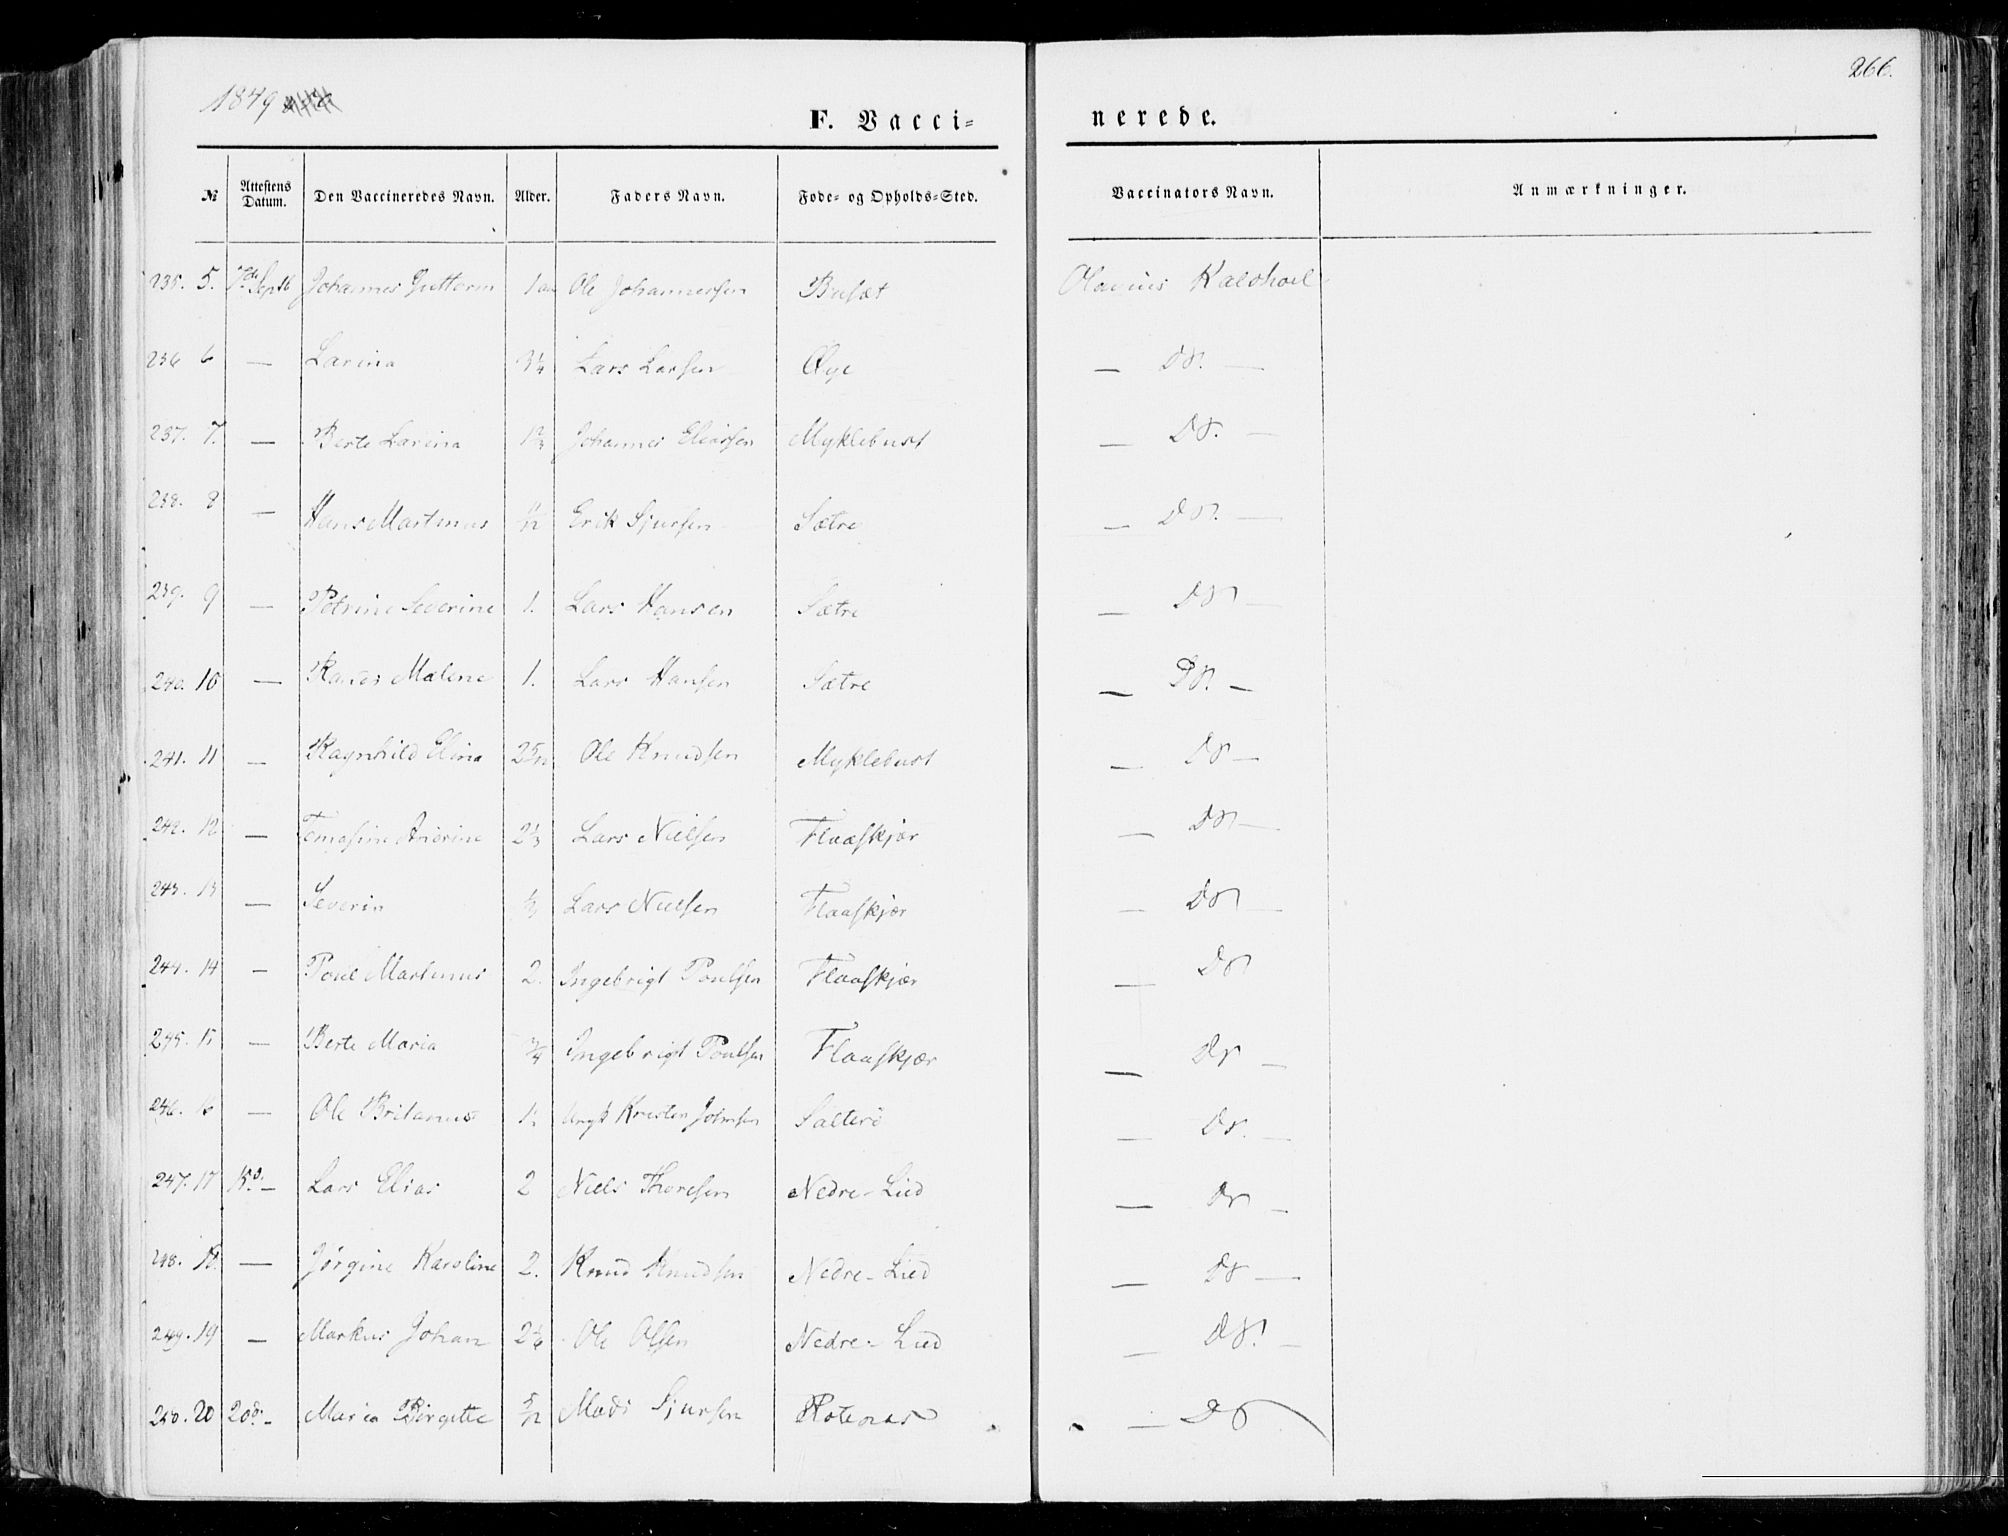 1849
266.
F. Vacci=
nerede.
№ Attestens Datum. Den Vaccineredes Navn. Alder. Faders Navn. Føde= og Opholds=Sted. Vaccinators Navn. Anmærkninger.
235. 5. 7de Septb Johannes Guttorm 1 aar Ole Johannessen Busæt Olavius Kaldhoel
236 6 — Larina 3/4 Lars Larsen Øye — Do. —
237. 7. — Berte Larina 1 2/3 Johannes Eliassen Myklebust — Do. —
238. 8 — Hans Martinus 11/12 Erik Sjursen Sætre — Do. —
239. 9 — Petrine Severine 1. Lars Hansen Sætre — Do —
240. 10 — Randi Malene 1. Lars Hansen Sætre — Do. —
241. 11 — Ragnhild Elina 2 5/12 Ole Knudsen Myklebust — Do —
242. 12 — Tomasine Anerine 2 1/3 Lars Nielsen Flaaskjær — Do —
243. 13 — Severin 1/3 Lars Nielsen Flaaskjær — Do —
244. 14 — Poul Martinus 2. Ingebrigt Poulsen Flaaskjær — Do
245. 15 — Berte Maria 3/4 Ingebrigt Poulsen Flaaskjær — Do —
246. 16 — Ole Britanus 1. Ungk Kristen Johnsen Salterö — Do. —
247. 17 15d — Lars Elias 2 Niels Thoresen Nedre-Lied — Do —
248. 18. — Jørgine Karoline 2. Knud Knudsen Nedre-Lied — Do —
249. 19 — Markus Johan 2 1/6 Ole Olsen Nedre-Lied — Do. —
250. 20 20d — Maria Birgitte 5/12 Mads Sjursen Rotenæs — Do